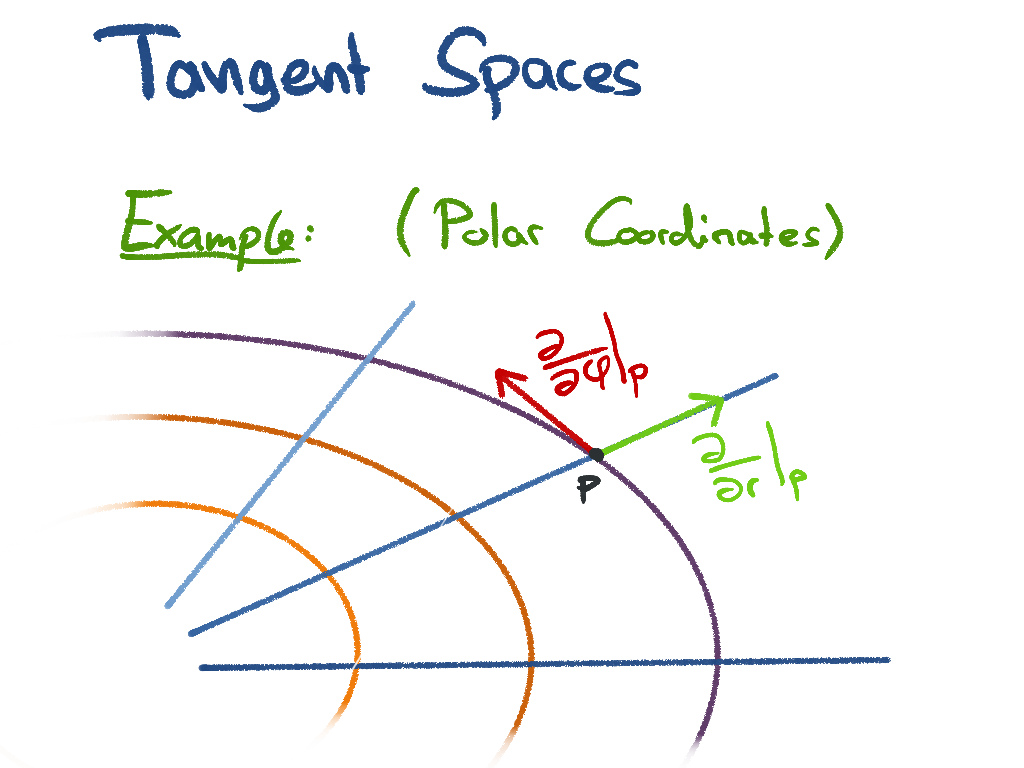 Tangent Spaces
Example: (Polar Coordinates)
∂/∂φ|p
∂/∂r|p
p